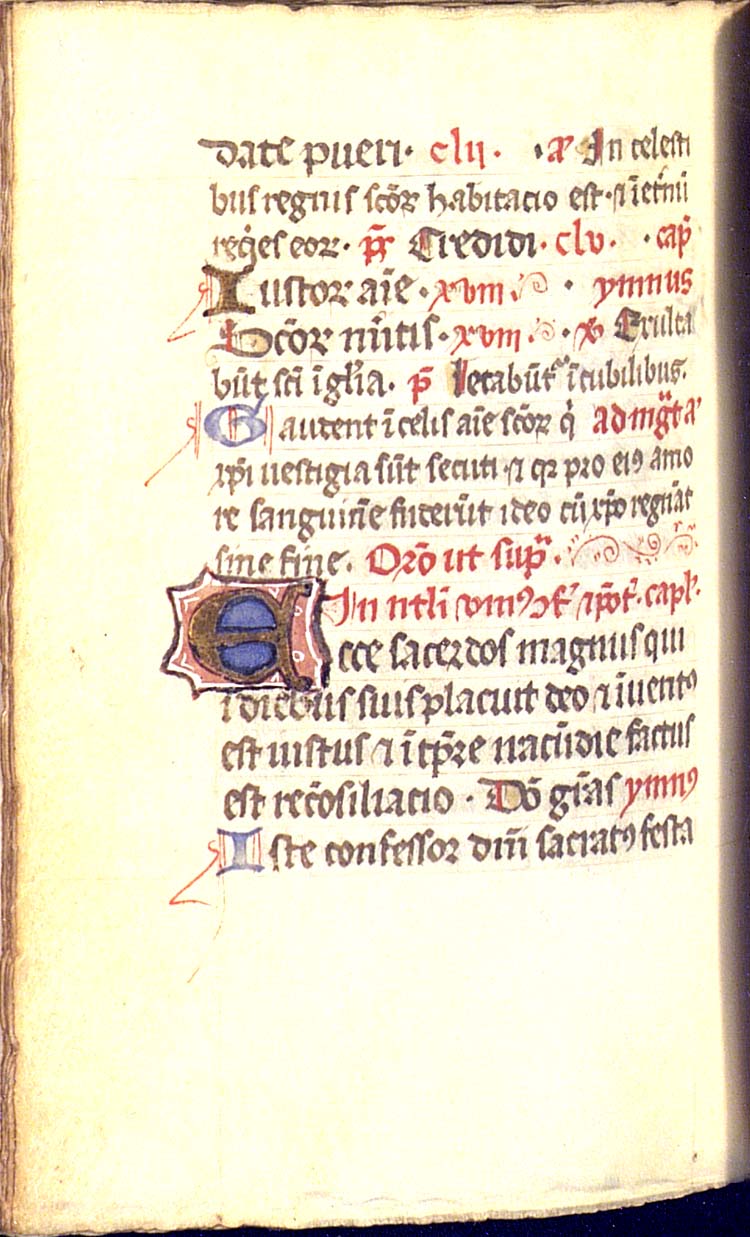 date pueri· clij· ·a᷒ In celesti
bus regnis sc̄oꝝ habitacio est·⁊ ī et̄nū
req̇es eoꝝ· p̄s Credidi· clv· ·cap̄
Iustoꝝ aīe· xviij· · ymnus
Sc̄oꝝ m̄itis· xviij· · ꝟ Exulta
būt sc̄i ī gl̄ia· ꝶ letabūt᷑ ī cubilibus·
Gaudent ī celis aīe sc̄oꝝ q̇ ad mḡt a᷒
xp̄i vestigia sūt secuti ·⁊ qꝛ pro eiꝰ amo
re sanguinē fuderūt ideo cū xp̄o regnāt
sine fine. Or̄o ut sup̄·
In nt̄li vniꝰ ꝯf᷑ ⁊ pōt᷑· capl̄·
Ecce sacerdos magnus qui
ī diebus suis placuit deo ⁊ īuentꝰ
est iustus ⁊ ī tp̄re iracūdie factus
est recōsiliacio · Dō gr̄as ymnꝰ
Iste confessor dn̄i sacratꝰ festa